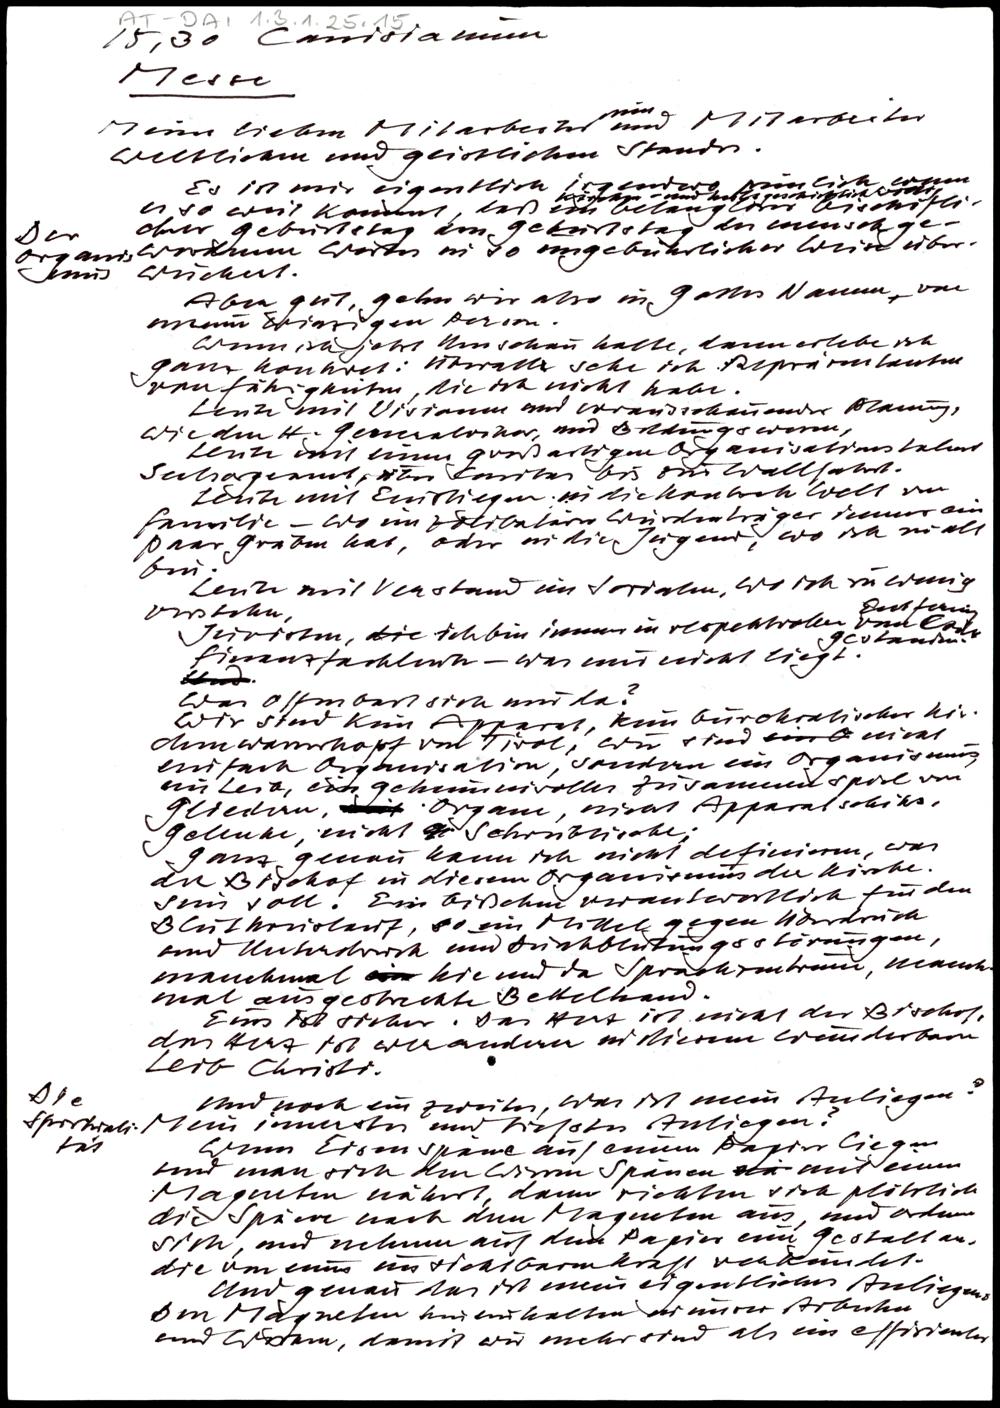 AT-DAI 1.3.1.25.15
15,30 Canisianum
Messe
Meine lieben Mitarbeiterinnen und Mitarbeiter
weltlichen und geistlichen Standes.
Es ist mir eigentlich irgendwo peinlich, wenn
es so weit kommt, daß ein kirchen- und heilsgeschichtlich belangloser bischöfli-
Der
Organis
mus
cher Geburtstag den Geburtstag des menschge-
wordenen Wortes in so ungebührlicher Weise über-
wuchert.
Aber gut, gehn wir also in Gottes Namen, von
meiner Person.
Wenn ich jetzt Umschau halte, dann erlebe ich
ganz konkret: überall sehe ich Repräsentanten
von Fähigkeiten, die ich nicht habe.
Leute mit Visionen und vorausschauender Planung,
wie den H. Generalvikar, und Bildungswesen,
Leute mit einem großartigen Organisationstalent
Seelsorgeamt, über Caritas bis zur Wallfahrt.
Leute mit Einstiegen in die konkrete Welt von
Familie – wo ein zölibatärer Würdenträger immer ein
paar Gräben hat, oder in die Jugend, wo ich zu alt
bin.
Leute mit Verstand im Sozialen, wo ich zu wenig
verstehe,
Juristen, die ich bin immer in respektvoller Entfernung vom Codex
gestanden.
Finanzfachleute – was mir nicht liegt.
Und.
Was offenbart sich mir da?
Wir sind kein Apparat, kein bürokratischer Kir-
chenwasserkopf von Tirol, wir sind nicht
einfach Organisation, sondern ein Organismus,
ein Leib, ein geheimnisvolles Zusammenspiel von
Gliedern, Organe, nicht Apparatschiks,
Gelenke, nicht Schreibtische;
Ganz genau kann ich nicht definieren, was
der Bischof in diesem Organismus der Kirche
sein soll. Ein bißchen verantwortlich für den
Blutkreislauf, so ein Mittel gegen Überdruck
und Unterdruck und Durchblutungsstörungen,
manchmal hie und da Sprachzentrum, manch-
mal ausgestreckte Bettelhand.
Eins ist sicher. Das Herz ist nicht der Bischof,
das Herz ist wer anderer in diesem wunderbaren
Leib Christi.
Die
Spiritali-
tät
Und noch ein zweites, was ist mein Anliegen?
Mein innerstes und tiefstes Anliegen?
Wenn Eisenspäne auf einem Papier liegen
und man sich den wirren Spänen mit einem
Magneten nähert, dann richten sich plötzlich
die Späne nach dem Magneten aus, und ordnen
sich, und nehmen auf dem Papier eine Gestalt an,
die von einer unsichtbaren Kraft verkündet.
Und genau das ist mein eigentliches Anliegen:
Den Magneten hineinhalten in unser Arbeiten
und Wirken, damit wir mehr sind als ein effizienter